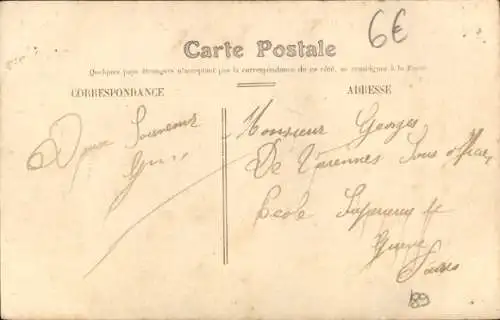 6€
Carte Postale
Quelques pays étrangers n'acceptant pas la correspondance de ce côté, se renseigner à la Poste.
CORRESPONDANCE
ADRESSE
Doux Souvenir
Monsieur Georges
De Varennes Sous
Ecole
Guerre
89